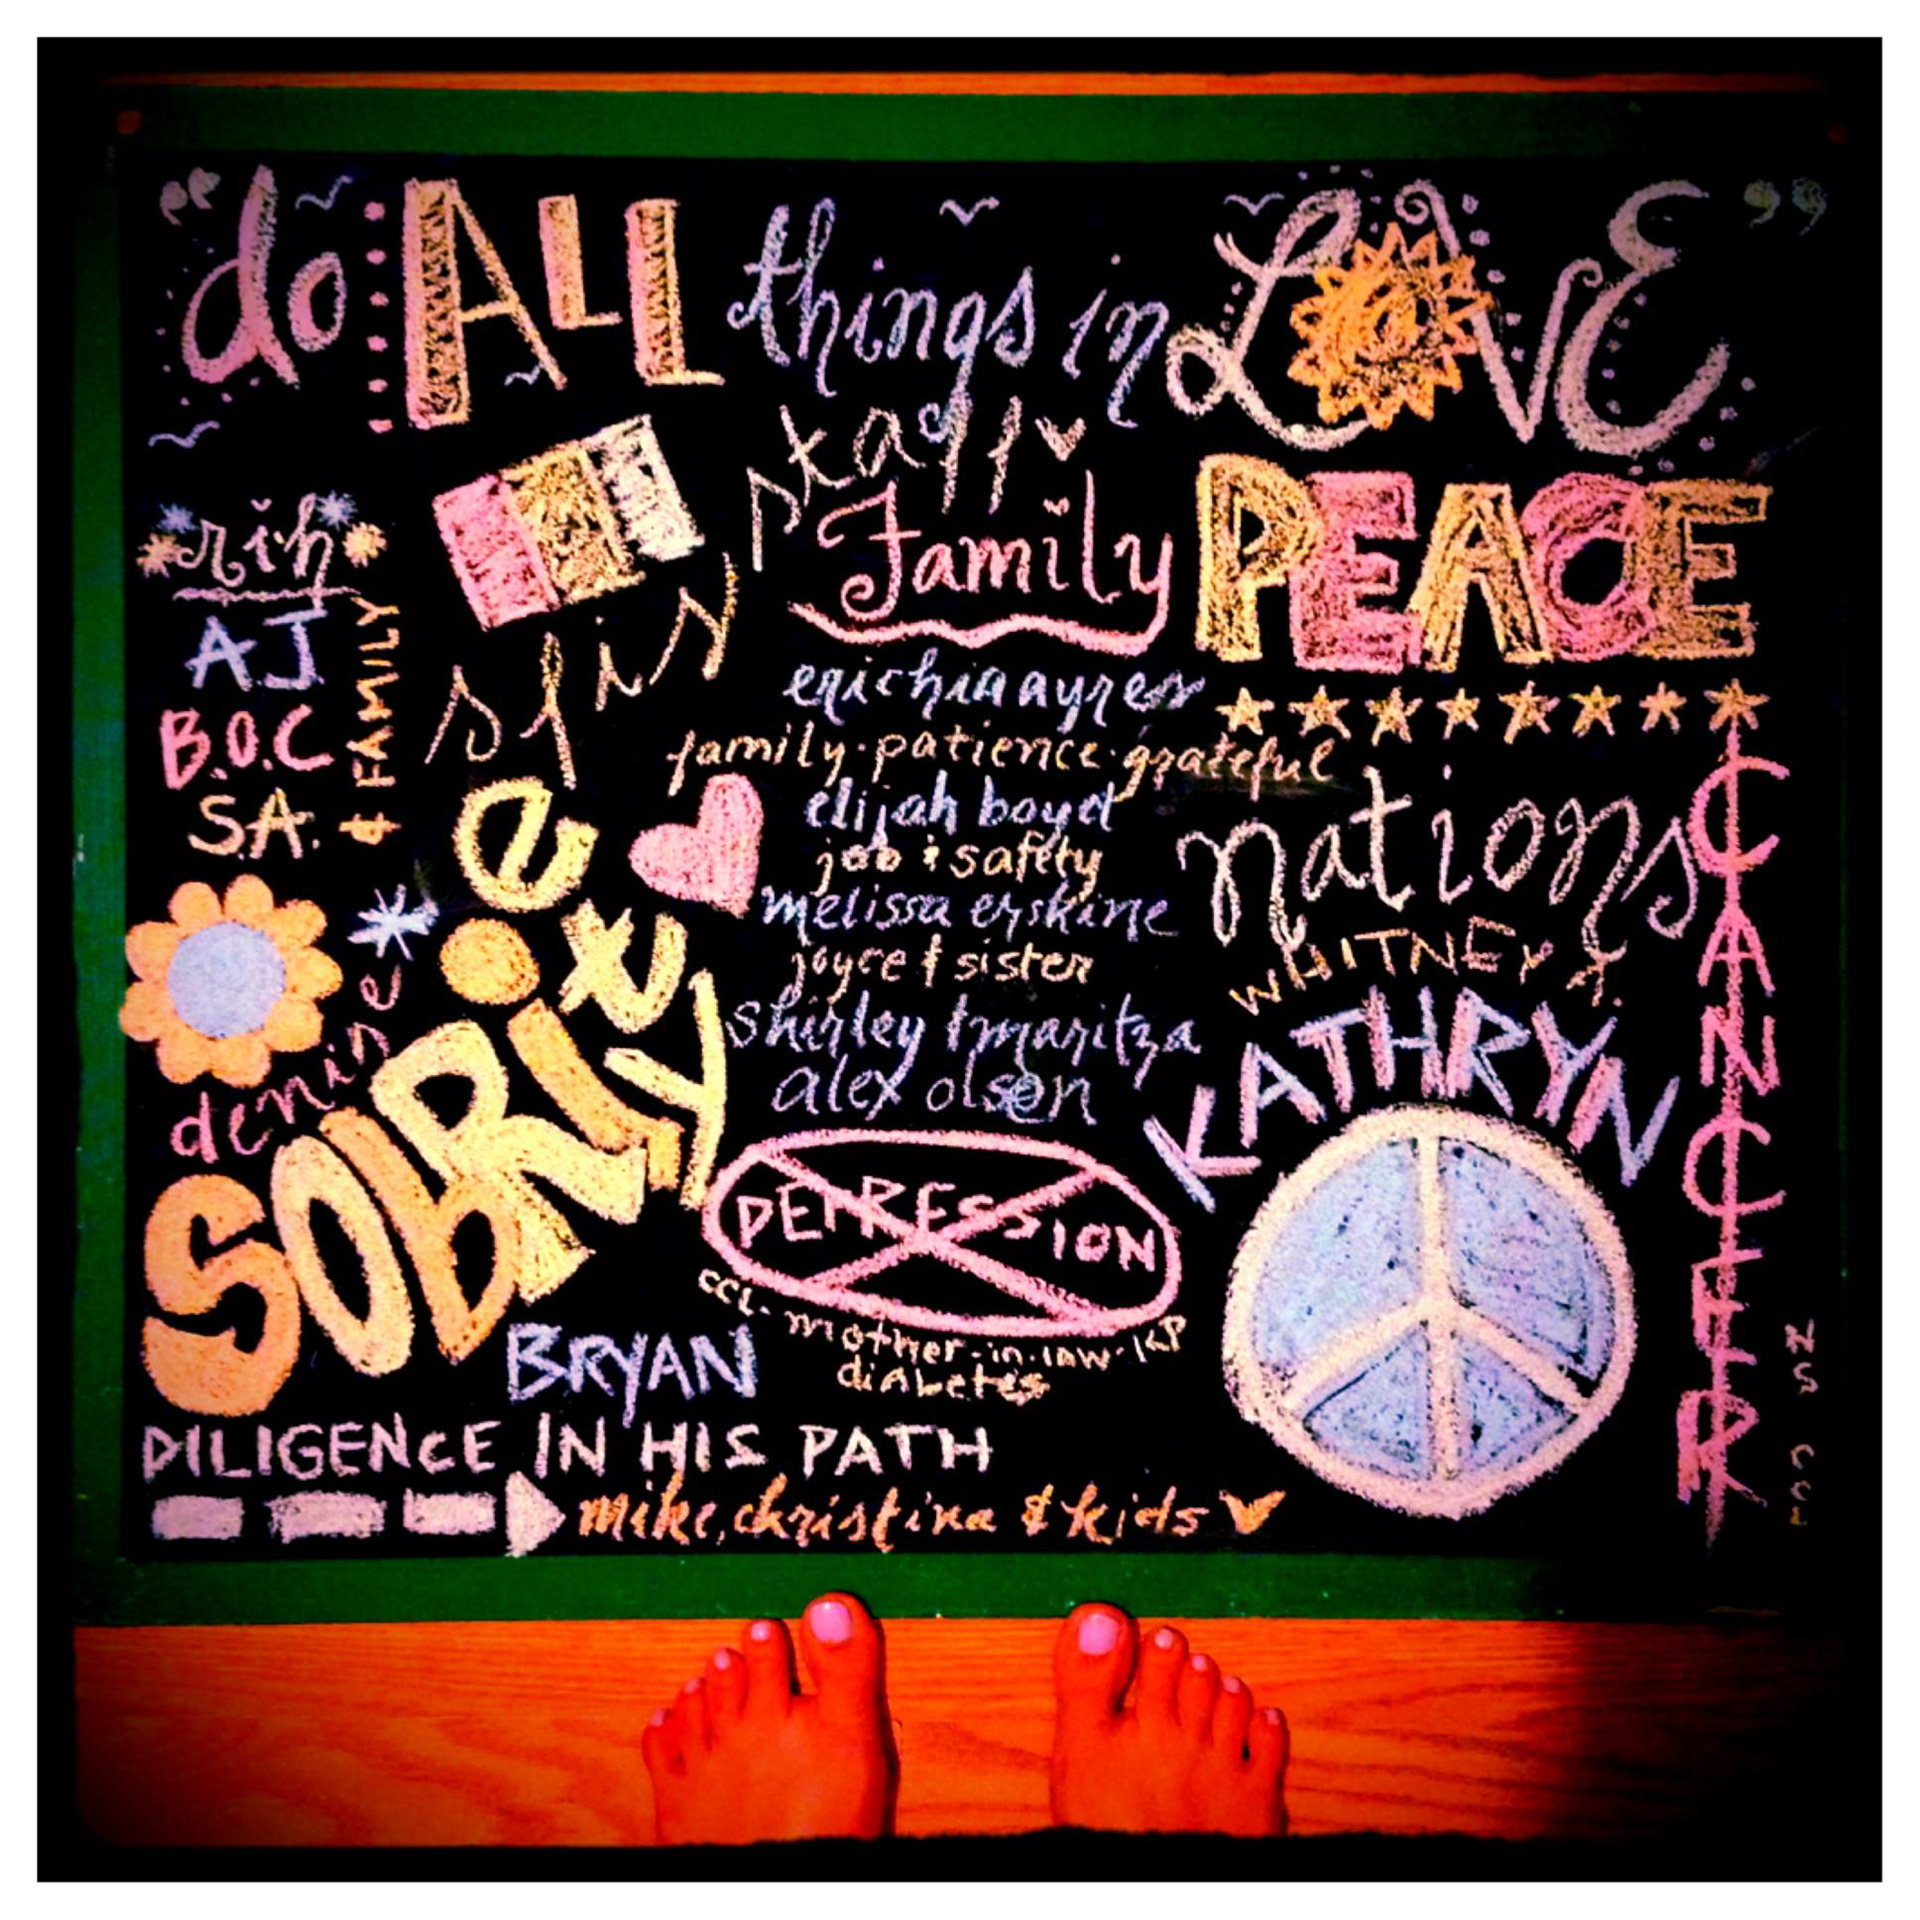 "do ALL things in LOVE"
staff
Family
PEACE
rih
AJ
B.O.C
S.A.
& FAMILY
sfis
erichia ayres
family · patience · grateful
elijah boyet
job & safety
melissa erskine
joyce & sister
shirley & maritza
alex olson
nations
WHITNEY A.
KATHRYN
CANCER
denise
SOBRiety
DEPRESSION
CCL - mother-in-law - KP
diabetes
BRYAN
DILIGENCE IN HIS PATH
mike, christina & kids
NS CCL